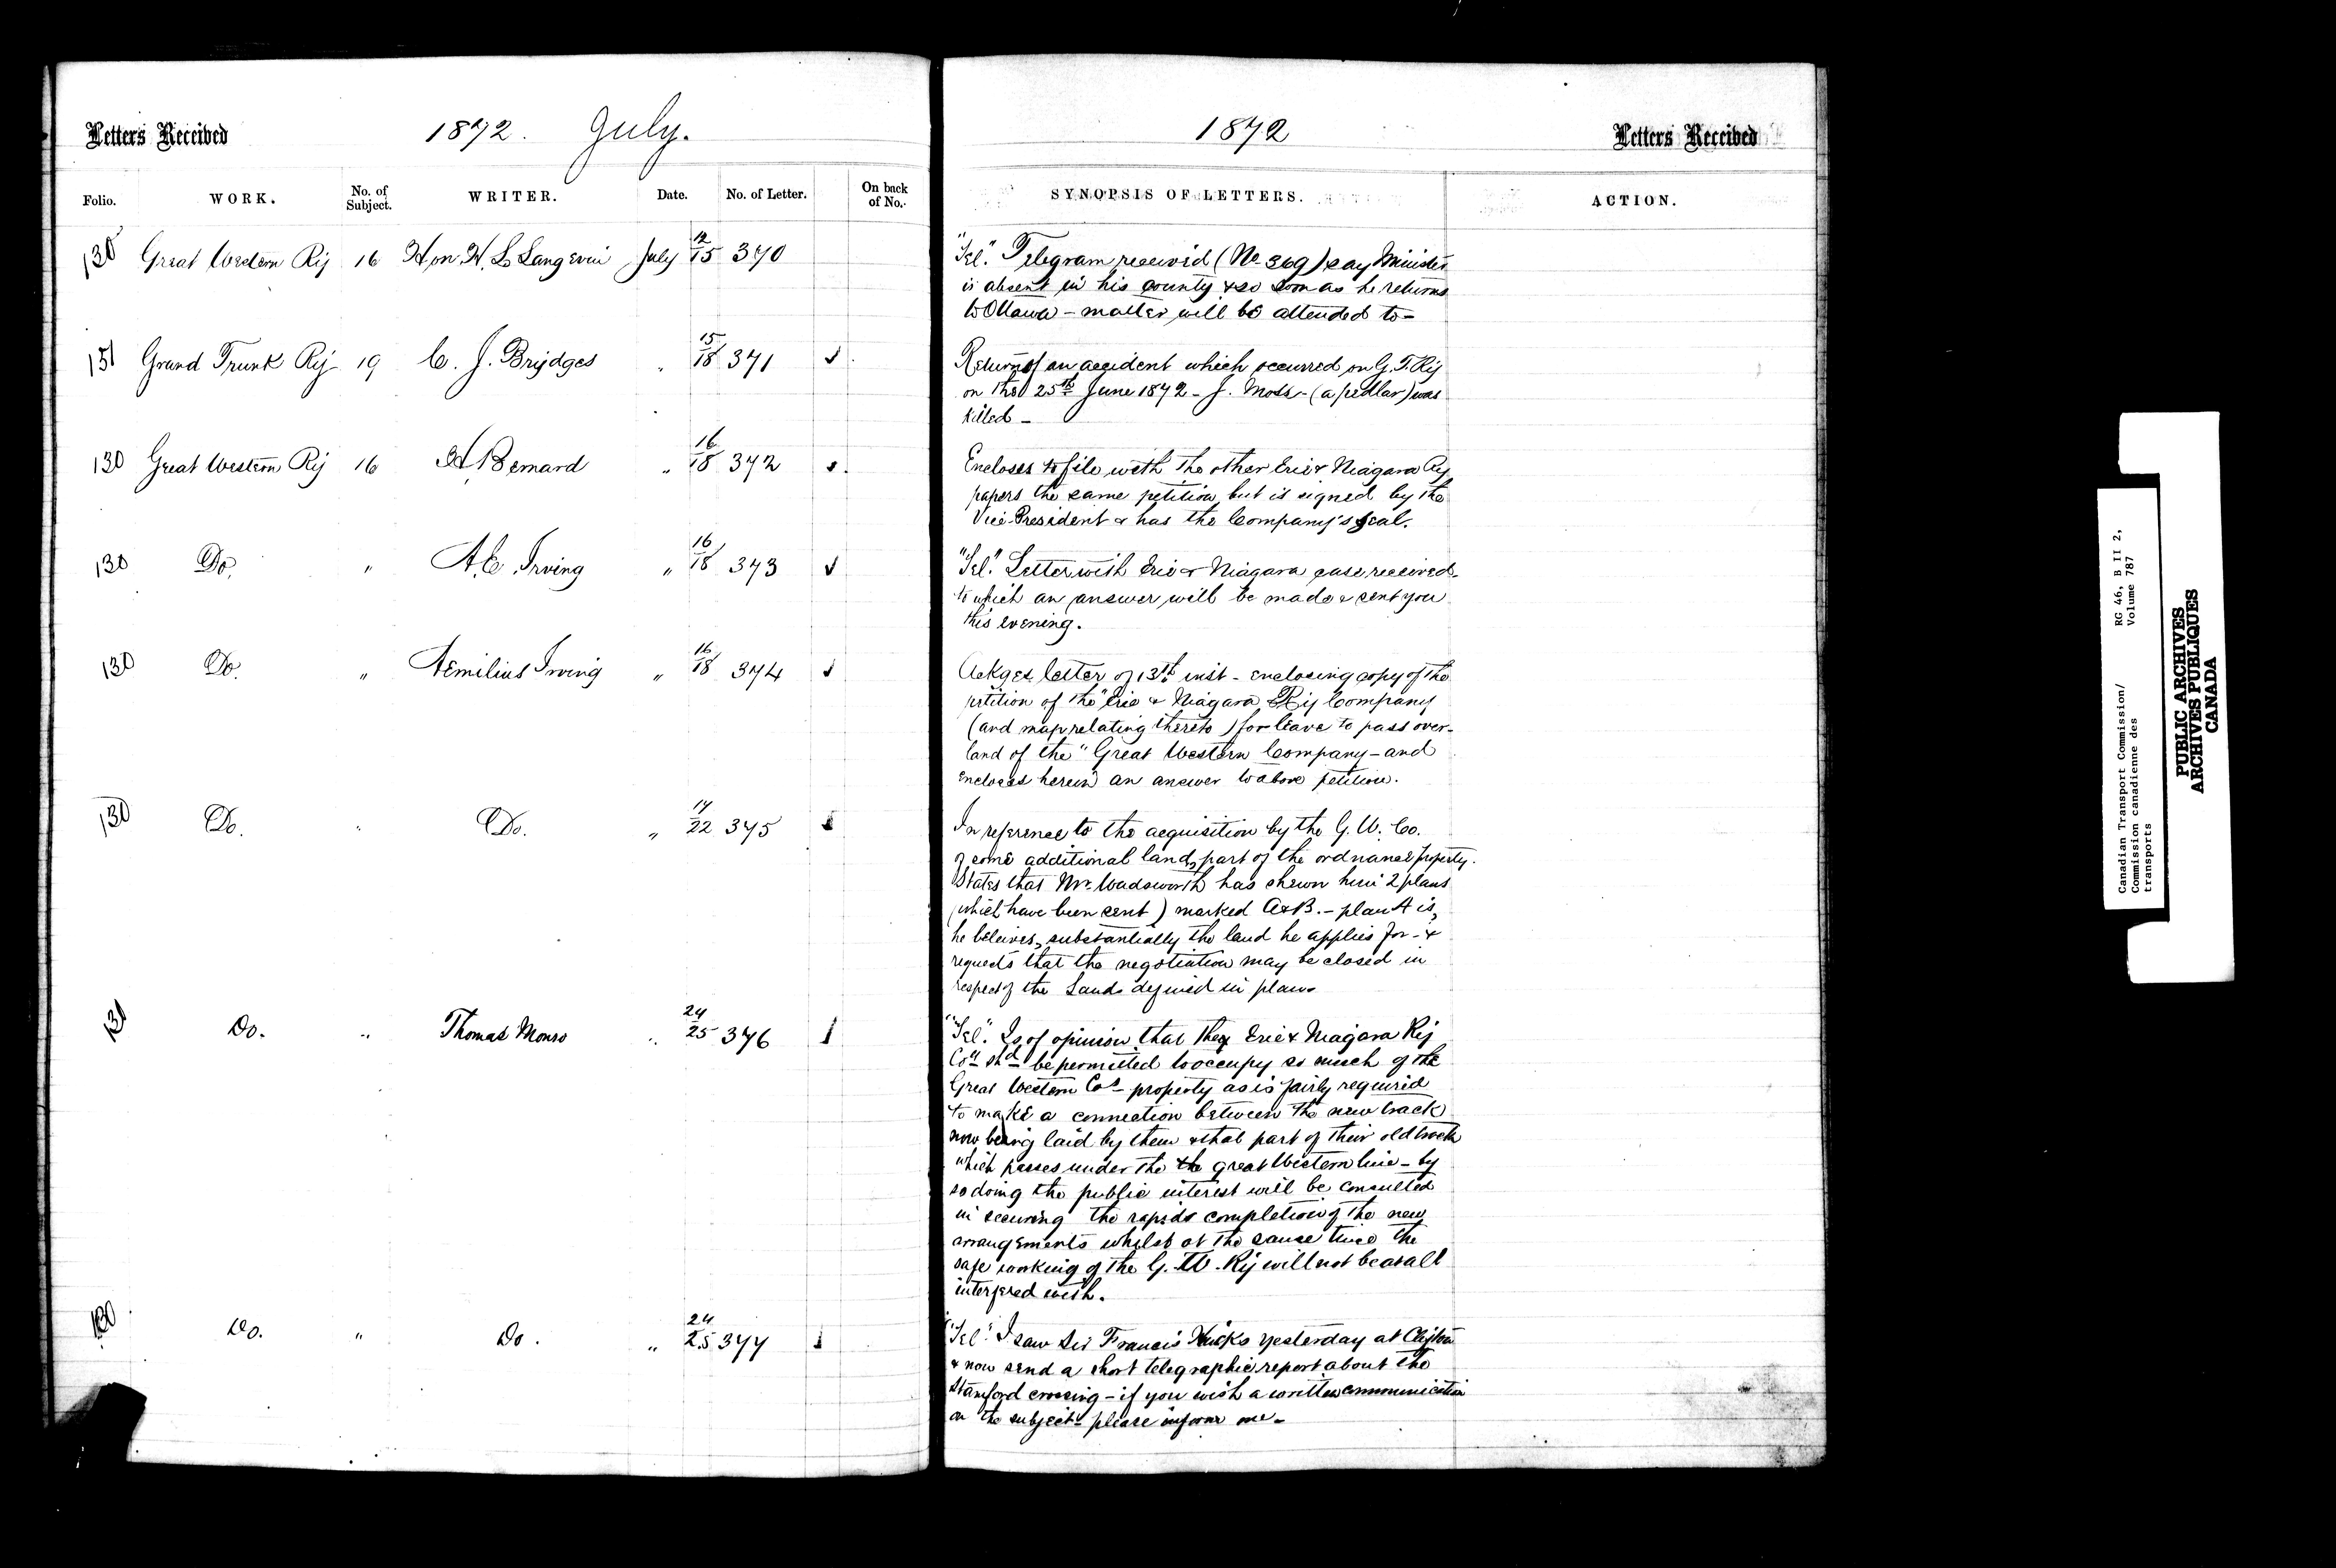 Letters Received 1872. July.
Folio. WORK. No. of Subject. WRITER. Date. No. of Letter. On back of No.
130 Great Western Ry 16 Hon H. L. Langevin July 12/15 370
151 Grand Trunk Ry 19 C. J. Brydges " 15/18 371 ✓
130 Great Western Ry 16 H Bernard " 16/18 372 ✓
130 Do. " A. E. Irving " 16/18 373 ✓
130 Do. " Aemilius Irving " 16/18 374 ✓
130 Do. " Do. " 17/22 375 ✓
131 Do. " Thomas Monro " 24/25 376 ✓
130 Do. " Do. " 24/25 377 ✓
1872 Letters Received
SYNOPSIS OF LETTERS. ACTION.
"Tel." Telegram received (No 369) say Minister
is absent in his county & so soon as he returns
to Ottawa - matter will be attended to -
Return of an accident which occurred on G. T. Ry
on the 25th June 1872 - J. Moss - (a pedlar) was
killed -
Encloses to file with the other Erie & Niagara Ry
papers the same petition, but is signed by the
Vice-President & has the Company's Seal.
"Tel." Letter with Erie & Niagara case received -
to which an answer will be made & sent you
this evening.
Ackges letter of 13th inst - enclosing copy of the
petition of the "Erie & Niagara Ry Company
(and map relating thereto) for leave to pass over -
land of the "Great Western Company - and
encloses herein an answer to above petition.
In reference to the acquisition by the G. W. Co.
of some additional land, part of the ordnance property.
States that Mr. Wadsworth has shewn him 2 plans
(which have been sent) marked A & B. - plan A is,
he beleives, substantially the land he applies for - &
requests that the negotiation may be closed in
respect of the Lands defined in plan -
"Tel." Is of opinion that the Erie & Niagara Ry
Coy shd be permitted to occupy so much of the
Great Western Cos property as is fairly required
to make a connection between the new track
now being laid by them & that part of their old track
which passes under the the great Western line - by
so doing the public interest will be consulted
in securing the rapid completion of the new
arrangements whilst at the same time the
safe working of the G. W. Ry will not be at all
interfered with.
"Tel." I saw Sir Francis Hincks yesterday at Clifton
& now send a short telegraphic report about the
Stamford crossing - if you wish a written communication
on the subject - please inform me -
Canadian Transport Commission/ RG 46, B II 2,
Commission canadienne des Volume 787
transports
PUBLIC ARCHIVES
ARCHIVES PUBLIQUES
CANADA